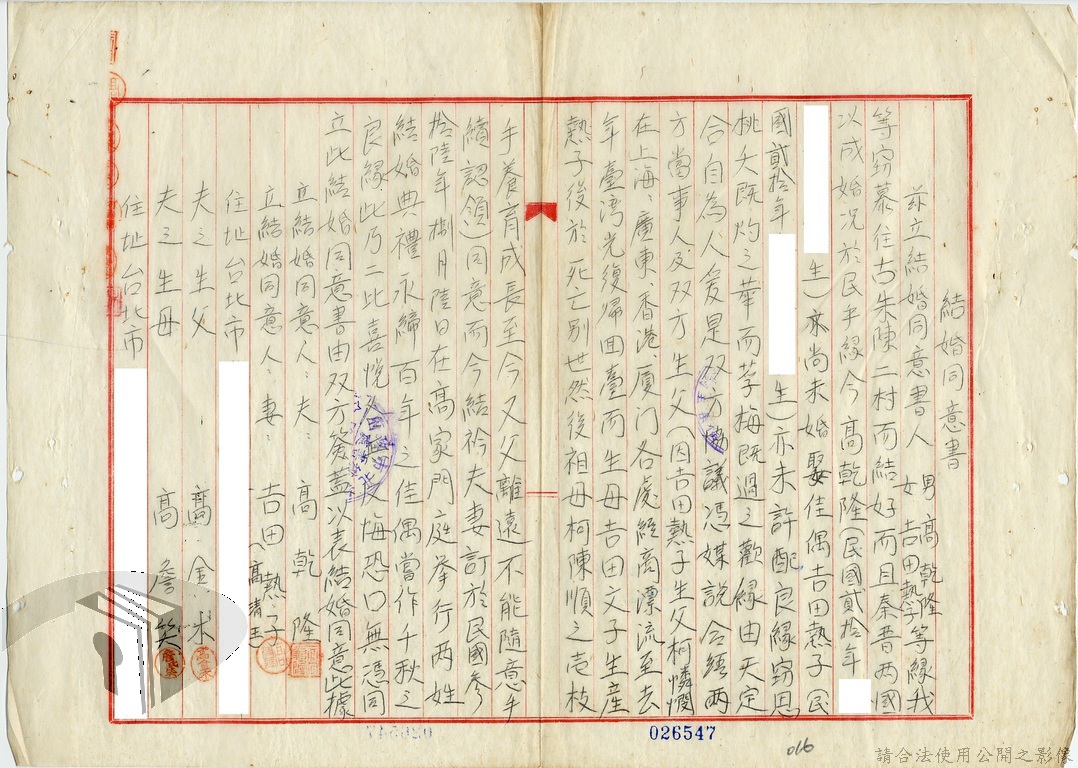 結婚同意書
茲立結婚同意書人 男 高乾隆 女 吉田熱子 等緣我
等窃慕往古朱陳二村而結好而且秦晋両國
以成婚况於民乎緣今高乾隆(民國貳拾年
生)亦尚未婚娶佳偶吉田熱子(民
國貳拾年 生)亦未許配良緣窃思
桃夭既灼之華而荸梅既過之歡緣由天定
合自為人爰是双方 議憑媒説合經両
方當事人及双方生父(因吉田熱子生父柯憐憫
在上海、廣東、香港、厦门各處經商漂流至去
年臺湾光復帰囬臺而生母吉田文子生産
熱子後於死亡别世然後祖母柯陳順之壱枝
手養育成長至今又父離遠不能隨意手
續認領)同意而今結衿夫妻訂於民國参
拾陸年捌月陸日在高家門庭举行両姓
結婚典禮永締百年之佳偶當作千秋之
良緣此乃二比喜悦 反悔恐口無憑同
立此結婚同意書由双方簽蓋以表結婚同意此據
立結婚同意人:夫: 高乾隆
立結婚同意人:妻: 吉田熱子
(高清玉)
住址台北市
夫之生父 高金米
夫之生母 高詹笑
住址台北市
026547
016
請合法使用公開之影像